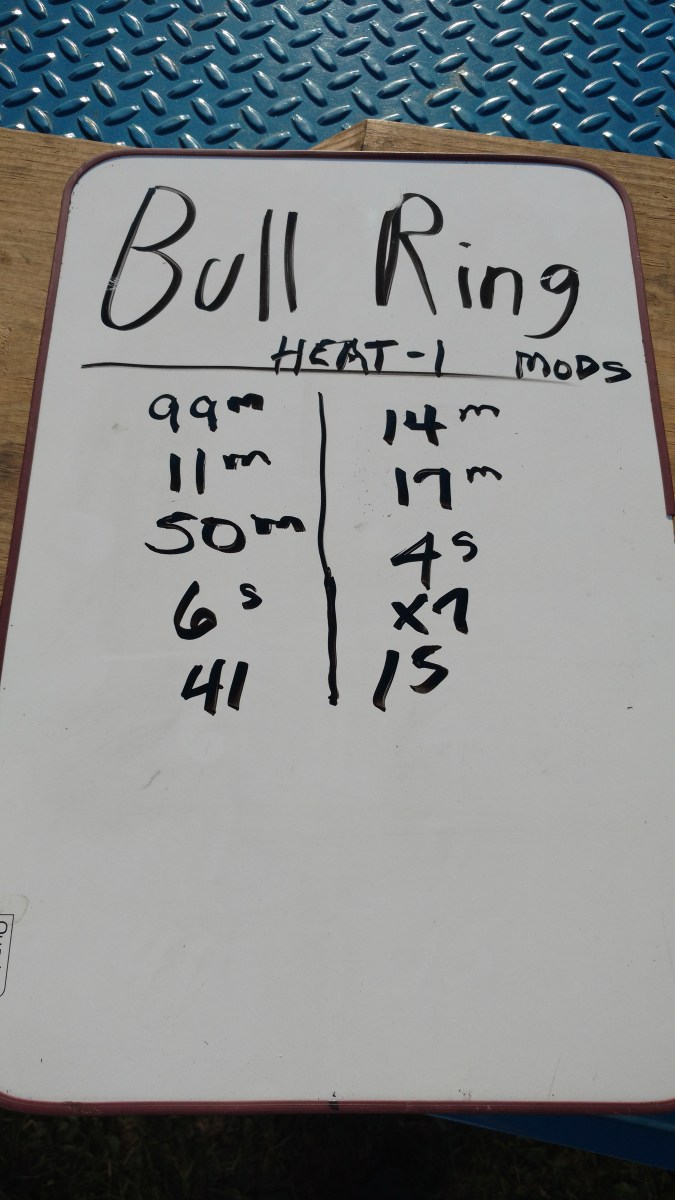 Bull Ring
HEAT-1 MODS
99m 14m
11m 17m
50m 4s
6s X7
41 15